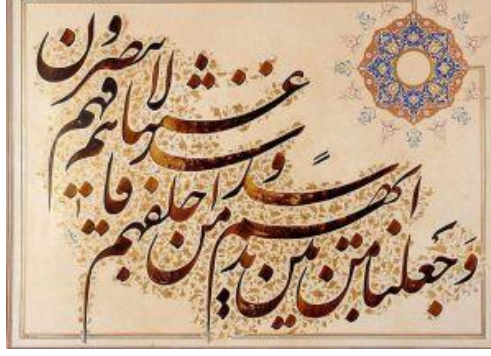 وَجَعلنا من بین ایدیهم سداً
و من خلفهم سداً فاغشیناهم
فهم لا یبصرون